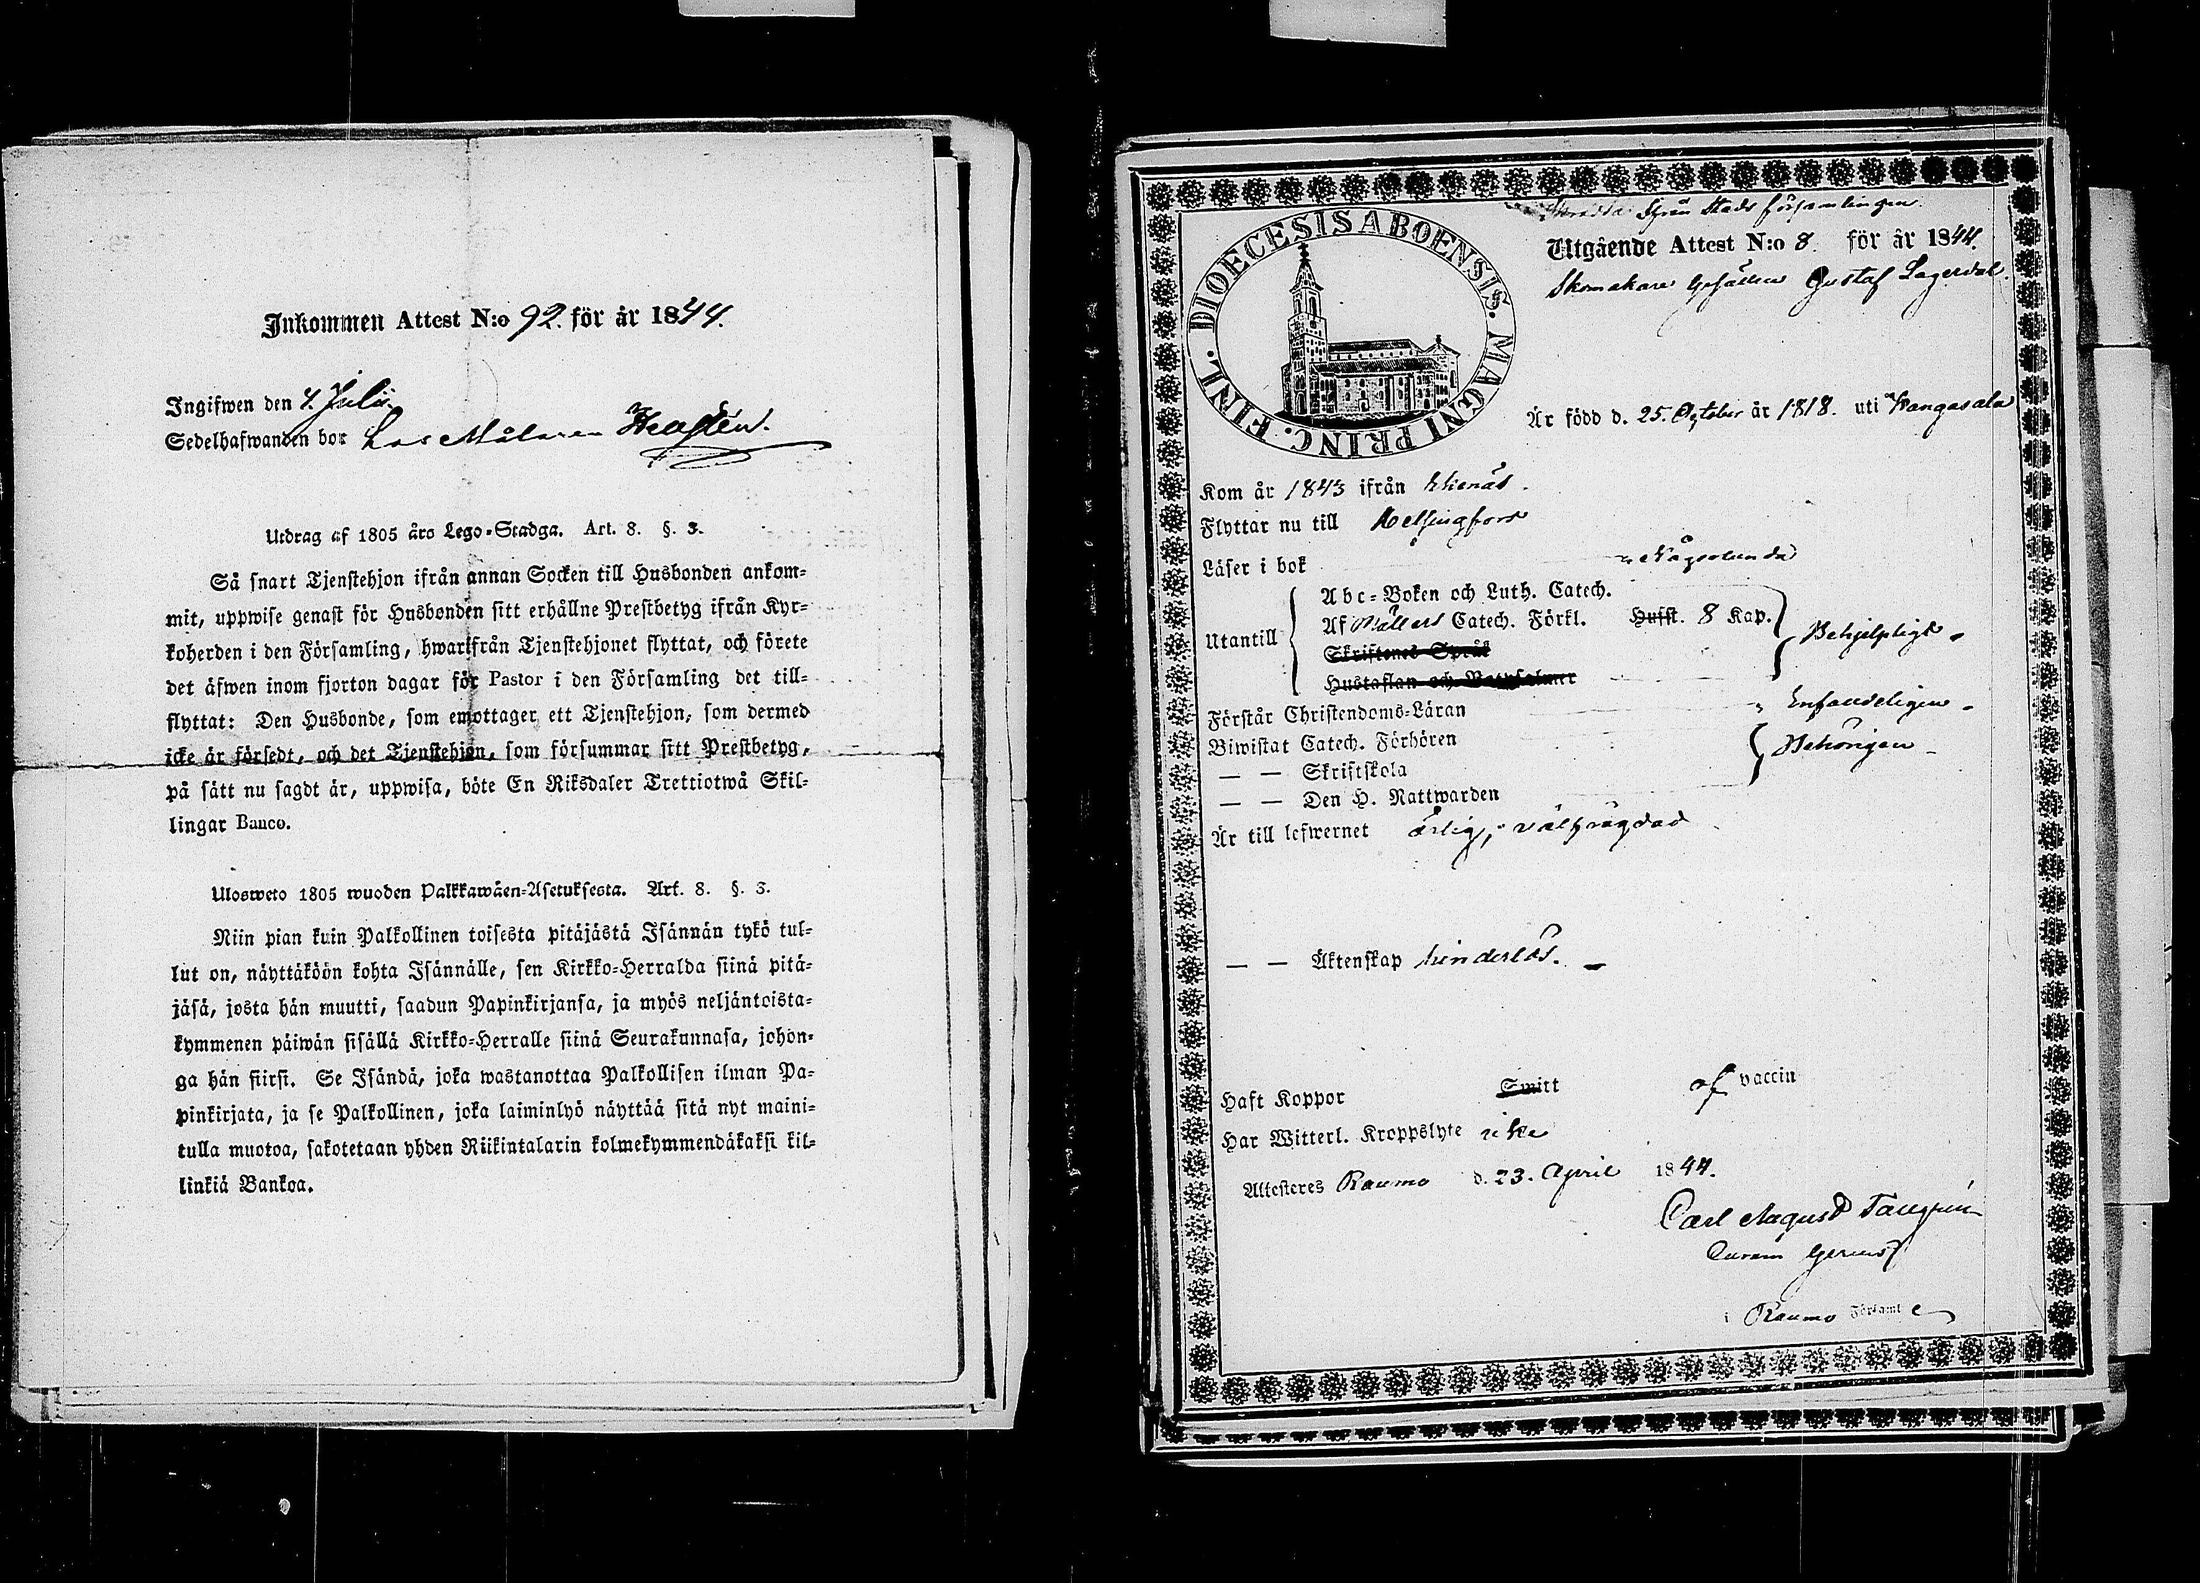 Inkommen Attest N:o 92. för år 1844.
Ingifwen den 4. Juli
Sedelhafwanden bor hos Målaren
Utdrag af 1805 års Lego-Stadga. Art. 8. §. 3.
Så snart Tjenstehjon ifrån annan Socken till Husbonden ankom-
mit, uppwise genast för Husbonden sitt erhållne Prestbetyg ifrån Kyr-
koherden i den Församling, hwarifrån Tjenstehjonet flyttat, och förete
det äfwen inom fjorton dagar för Pastor i den Församling det till-
flyttat: Den Husbonde, som emottager ett Tjenstehjon, som dermed
icke är försedt, och det Tjenstehjon, som försummar sitt Prestbetyg,
på sätt nu sagdt är, uppwisa, böte En Riksdaler Trettiotwå Skil-
lingar Banco.
Ulosweto 1805 wuoden Palkkawäen-Asetuksesta. Art. 8. §. 3.
Niin pian kuin Palkollinen toisesta pitäjästä Isännän tykö tul-
lut on, näyttäköön kohta Isännälle, sen Kirkko-Herralda siinä pitä-
jäsä, josta hän muutti, saadun Papinkirjansa, ja myös neljäntoista-
kymmenen päiwän sisällä Kirkko-Herralle siinä Seurakunnasa, johon-
ga hän siirsi. Se Isändä, joka wastanottaa Palkollisen ilman Pa-
pinkirjata, ja se Palkollinen, joka laiminlyö näyttää sitä nyt maini-
tulla muotoa, sakotetaan yhden Riikintalarin kolmekymmendäkaksi kil-
linkiä Bankoa.
DIOECESIS ABOENSIS. MAGNI PRINC. FINL.
från Stads församlingen
Utgående Attest N:o 8. för år 1844.
Skomakare Gesällen Gustaf Lagerdal.
Är född d. 25. October år 1818. uti Kangasala
Kom år 1843 ifrån Ekenäs.
Flyttar nu till Helsingfors
Läser i bok Någorlunda
Utantill
Abc-Boken och Luth. Catech.
Af Möllers Catech. Förkl. Hufst. 8 Kap. Behjelpligt
Skriftenes Språk
Hustaflan och Botpsalmer
Förstår Christendoms-Läran Enfaldeligen
Biwistat Catech. Förhören Behörigen
— — Skriftskola
— — Den H. Nattwarden
Är till lefwernet ärlig, välfrägdad
— — Äktenskap hinderlös.
Haft Koppor Smitt af vaccin
Har Witterl. Kroppslyte icke
Attesteres Raumo d. 23. April 1844.
Carl August
i Raumo Församl